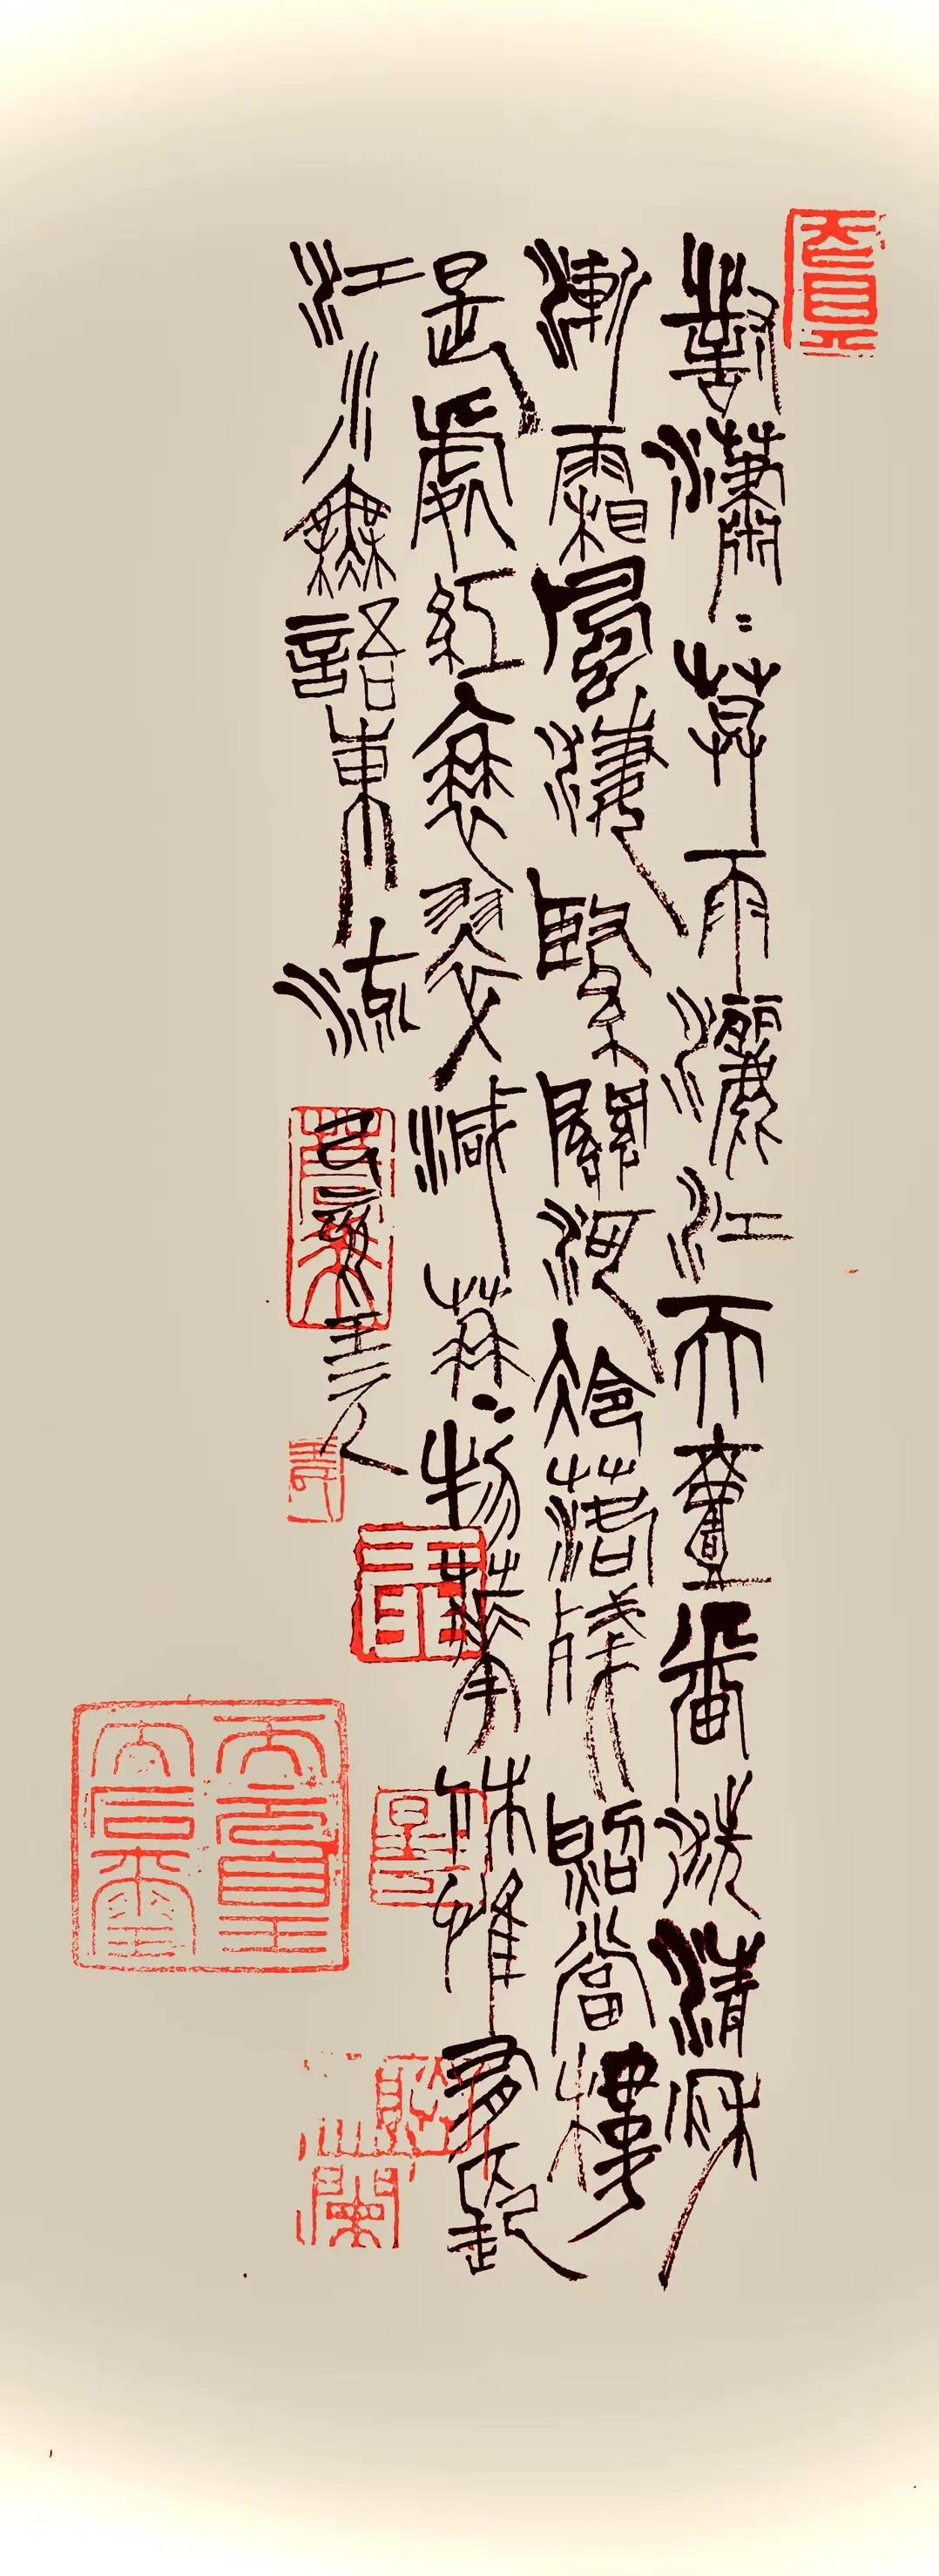 對瀟〻莫雨灑江天壹番洗清秋
漸霜風淒緊關河冷落殘照當樓
是處紅衰翠減苒〻物華休惟有長
江水無語東流